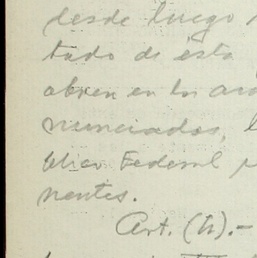 desde luego
tado de ésta
obren en los
nunciados,
Federal
nentes.
Art. (h).-